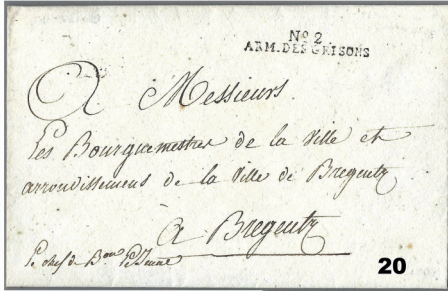 Nº 2
ARM. DES GRISONS
A Messieurs
Les Bourguemettres de la Ville et
arrondissemens de la Ville de Bregentz
à Bregentz
Le chef de Bon
20